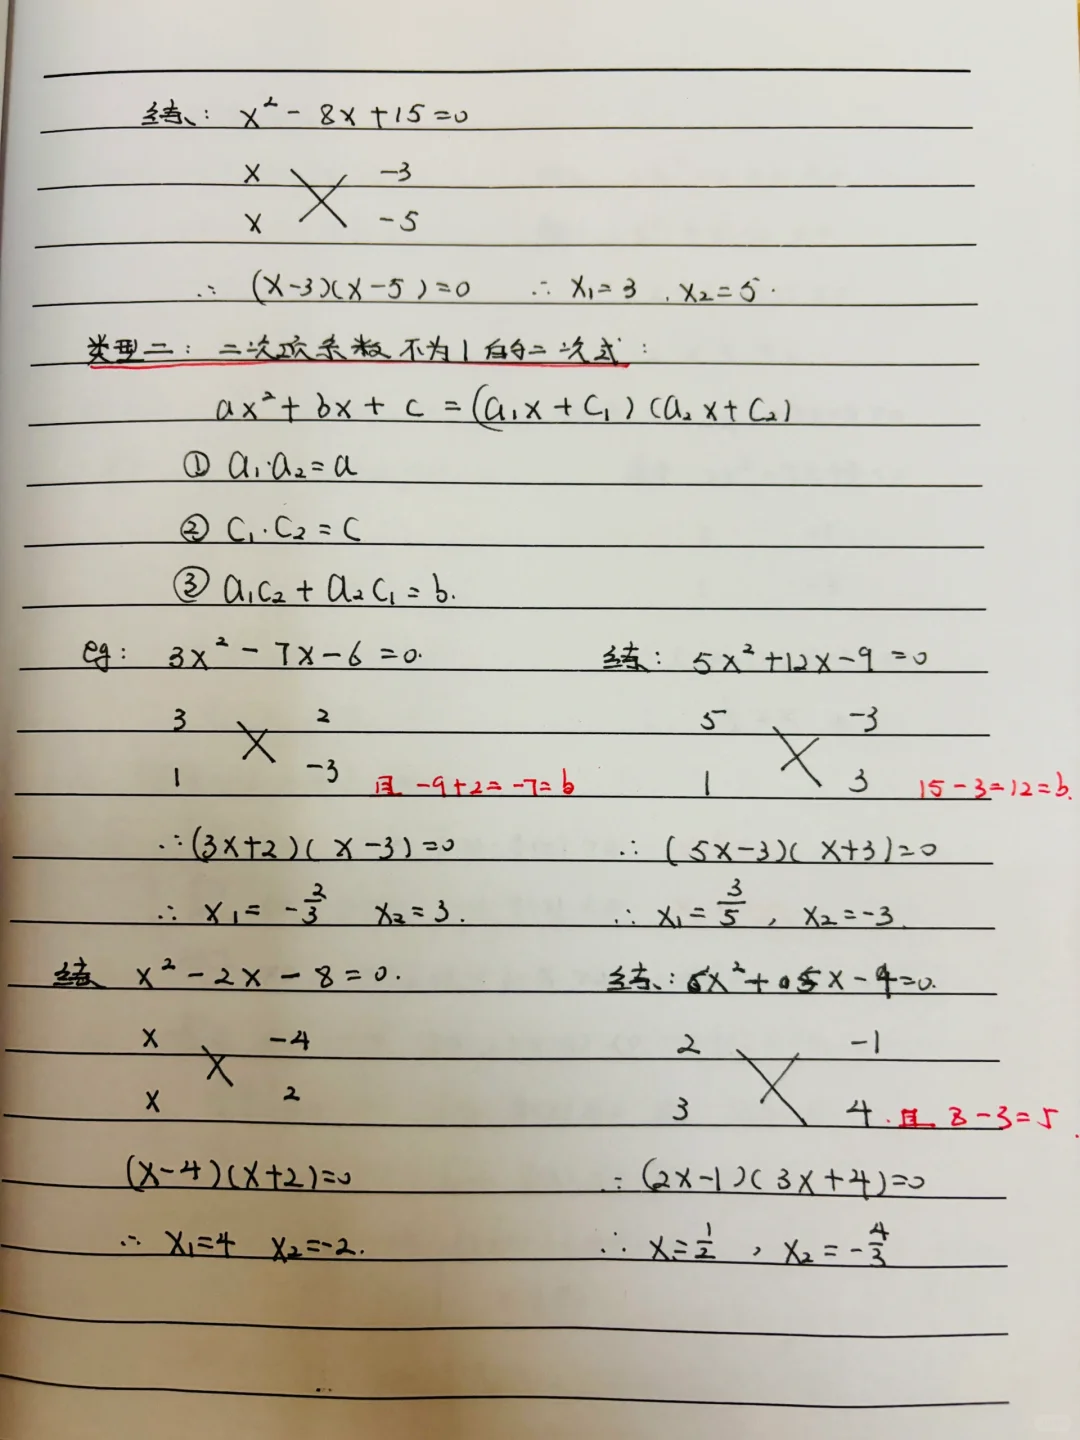 练: x² - 8x + 15 = 0
x -3
x -5
∴ (x-3)(x-5)=0 ∴ x₁=3 , x₂=5.
类型二: 二次项系数不为1的二次式:
ax² + bx + c = (a₁x + c₁)(a₂x + c₂)
① a₁·a₂=a
② c₁·c₂=c
③ a₁c₂ + a₂c₁=b.
eg: 3x² - 7x - 6 = 0.
3 2
1 -3 且 -9+2=-7=b
∴(3x+2)(x-3)=0
∴ x₁= -2/3 x₂=3.
练: 5x²+12x-9=0
5 -3
1 3 15-3=12=b.
∴ (5x-3)(x+3)=0
∴ x₁=3/5 , x₂=-3.
练 x² - 2x - 8 = 0.
x -4
x 2
(x-4)(x+2)=0
∴ x₁=4 x₂=-2.
练: 6x²+5x-4=0.
2 -1
3 4. 且 8-3=5.
∴ (2x-1)(3x+4)=0
∴ x₁=1/2 , x₂=-4/3